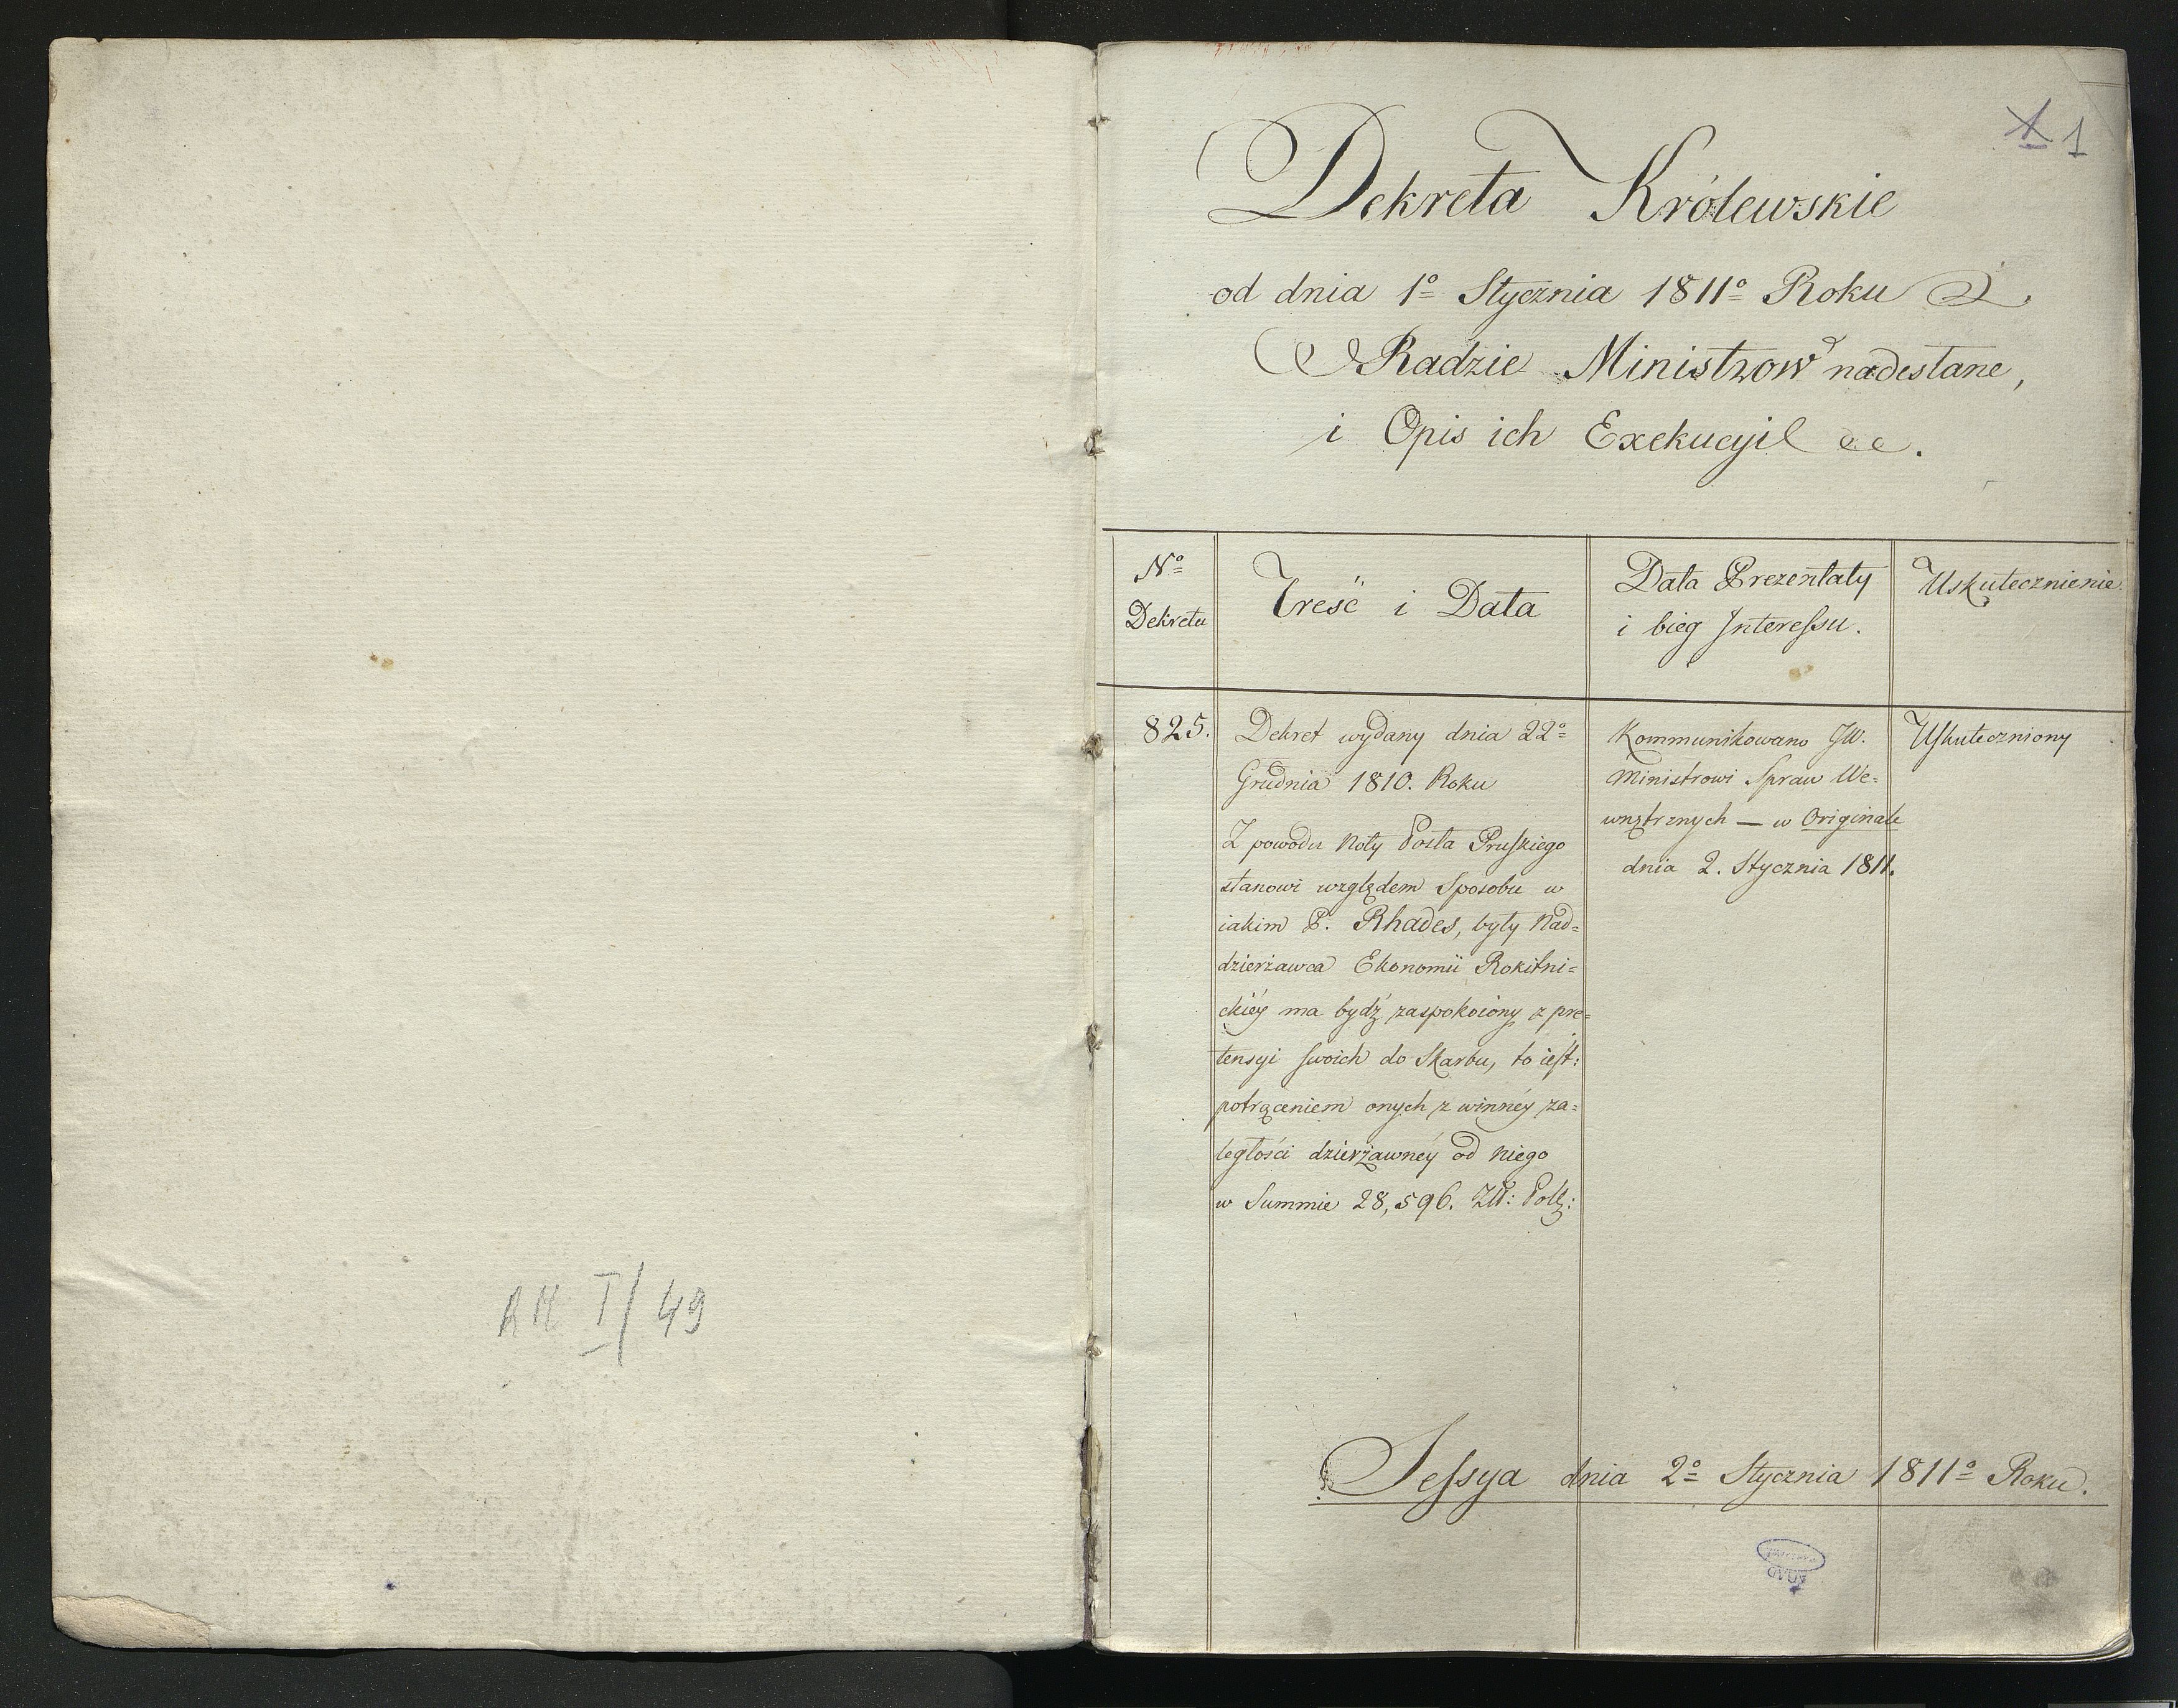 RM I/49
1 1
Dekreta Królewskie
od dnia 1º Stycznia 1811º Roku
Radzie Ministrow nadesłane,
i Opis ich Exekucyi
Nº
Dekretu
Treść i Data
Data Prezentaty
i bieg Interessu.
Uskutecznienie.
825.
Dekret wydany dnia 22º
Grudnia 1810. Roku
Z powodu Noty Posła Pruskiego
stanowi względem Sposobu w
iakim P. Rhades, były Nad=
dzierżawca Ekonomii Rokitni=
ckiéy ma bydź zaspokoiony z pre=
tensyi swoich do Skarbu, to iest:
potrąceniem onych z winnéy za=
ległości dzierżawnéy od niego
w Summie 28,596. Złł: Pols:
Kommunikowano JW.
Ministrowi Spraw We=
wnętrznych — w Originale
dnia 2. Stycznia 1811.
Uskuteczniony
Sessya dnia 2º Stycznia 1811º Roku.
AGAD